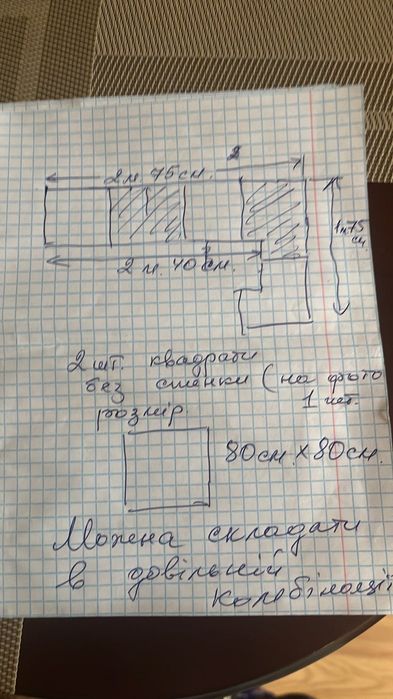 2
2 м. 75 см.
1 м. 75 см.
2 м. 40 см.
2 шт. квадрати
без стенки (на фото
1 шт.
розмір.
80 см. х 80 см.
Можна складати
в довільній
комбінації